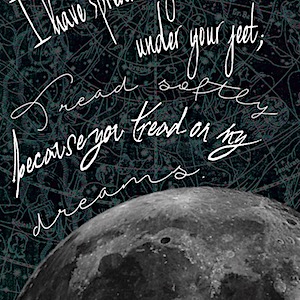 I have spread
under your feet;
Tread softly
because you tread on my
dreams.